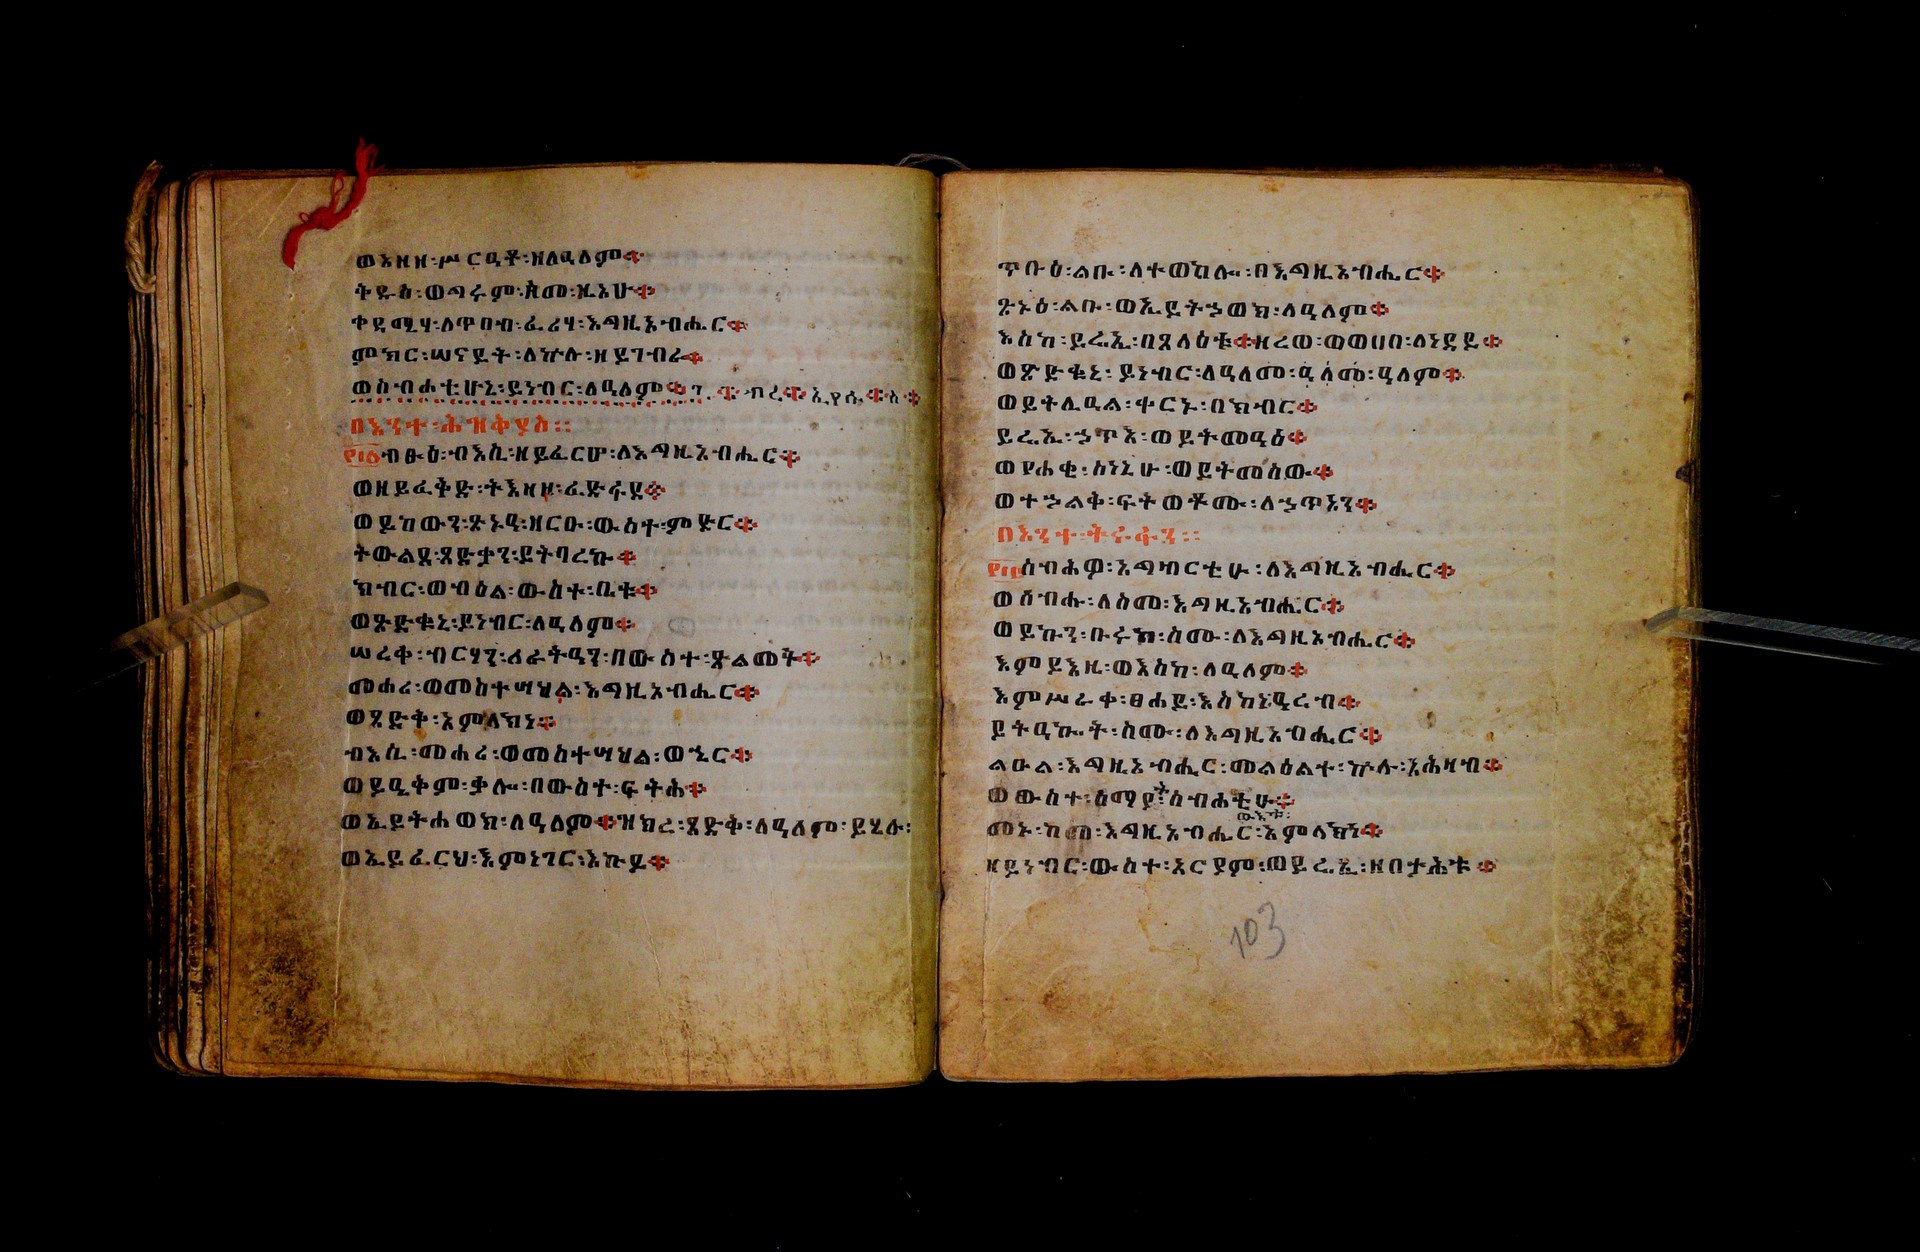 ወአዘዘ፡ሥርዓቶ፡ዘለዓለም።
ቅዱስ፡ወግሩም፡ዘመ፡ዚአሁ።
ቀዳሚሃ፡ለጥበብ፡ፈሪሃ፡እግዚአብሔር።
ምክር፡ሠናይት፡ለኵሉ፡ዘይገብራ።
ወስብሐቲሁኒ፡ይነብር፡ለዓለም።
በእንተ፡ሕዝቅያስ።
፻፲፩ብፁዕ፡ብእሲ፡ዘይፈርሆ፡ለእግዚአብሔር።
ወዘይፈቅድ፡ትእዛዘ፡ፈድፋደ።
ወይከውን፡ጽኑዓ፡ዘርዑ፡ውስተ፡ምድር።
ትውልደ፡ጻድቃን፡ይትባረኩ።
ክብር፡ወብዕል፡ውስተ፡ቤቱ።
ወጽድቁኒ፡ይነብር፡ለዓለም።
ሠረቀ፡ብርሃን፡ለራትዓን፡በውስተ፡ጽልመት።
መሐሪ፡ወመስተሣህል፡እግዚአብሔር።
ወጻድቅ፡አምላክነ።
ብእሲ፡መሐሪ፡ወመስተሣህል፡ወኄር።
ወይዔቅም፡ቃሎ፡በውስተ፡ፍትሕ።
ወኢይትሐወክ፡ለዓለም።ዝክረ፡ጻድቅ፡ለዓለም፡ይሄሉ፡
ወኢይፈርህ፡እምነገር፡እኩይ።
ጥቡዕ፡ልቡ፡ለተወክሎ፡በእግዚአብሔር።
ጽኑዕ፡ልቡ፡ወኢይትኃወክ፡ለዓለም።
እስከ፡ይሬኢ፡በጸላዕቱ።ዘረወ፡ወወሀበ፡ለነዳይ።
ወጽድቁኒ፡ይነብር፡ለዓለመ፡ዓለም።
ወይትሌዓል፡ቀርኑ፡በክብር።
ይሬኢ፡ኃጥእ፡ወይትመዓዕ።
ወየሐቂ፡ስነኒሁ፡ወይትመሰው።
ወተኃልቅ፡ፍትወቶሙ፡ለኃጥአን።
በእንተ፡ትሩፋን።
፻፲፪ስብሕዎ፡አግብርቲሁ፡ለእግዚአብሔር።
ወሰብሑ፡ለስመ፡እግዚአብሔር።
ወይኩን፡ቡሩክ፡ስሙ፡ለእግዚአብሔር።
እምይእዜ፡ወእስከ፡ለዓለም።
እምሥራቀ፡ፀሐይ፡እስከነ፡ዓረብ።
ይትዓኰት፡ስሙ፡ለእግዚአብሔር።
ልዑል፡እግዚአብሔር፡መልዕልተ፡ኵሉ፡አሕዛብ።
ወውስተ፡ሰማያት፡ስብሐቲሁ።
መኑ፡ከመ፡እግዚአብሔር፡አምላክነ።
ዘይነብር፡ውስተ፡አርያም፡ወይሬኢ፡ዘበታሕቱ።
103